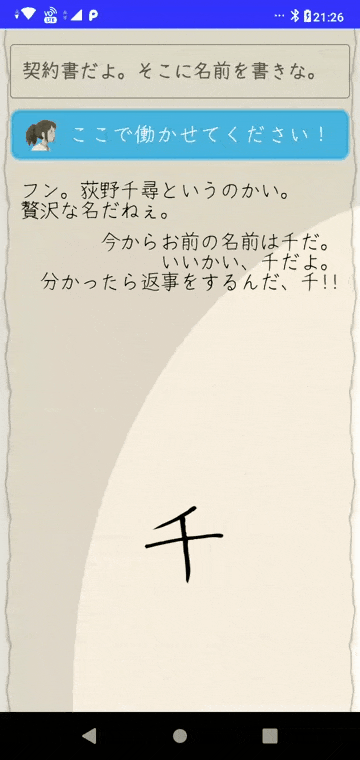 21:26
契約書だよ。そこに名前を書きな。
ここで働かせてください！
フン。荻野千尋というのかい。
贅沢な名だねぇ。
今からお前の名前は千だ。
いいかい、千だよ。
分かったら返事をするんだ、千!!
千